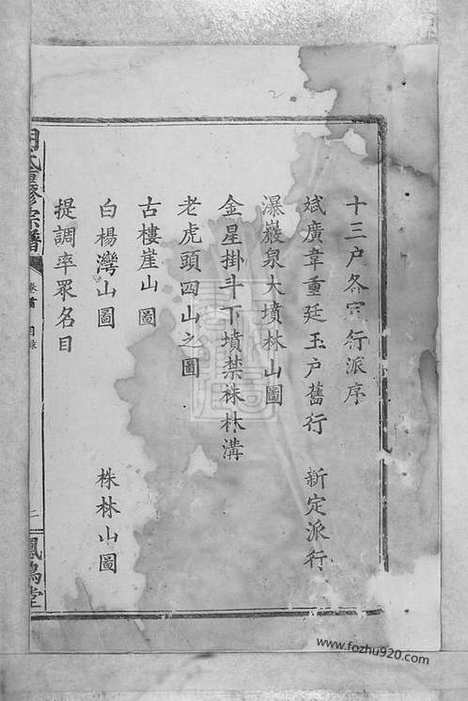 十三户各宗行派序
斌廣韋重廷玉户舊行 新定派行
瀑巖泉大墳林山圖
金星掛斗下墳禁株林溝
老虎頭四山之圖
古樓崖山圖
白楊灣山圖 株林山圖
提調率眾名目
氏重修宗譜 卷首 目錄 二 鳳鳴堂
www.fozhu920.com